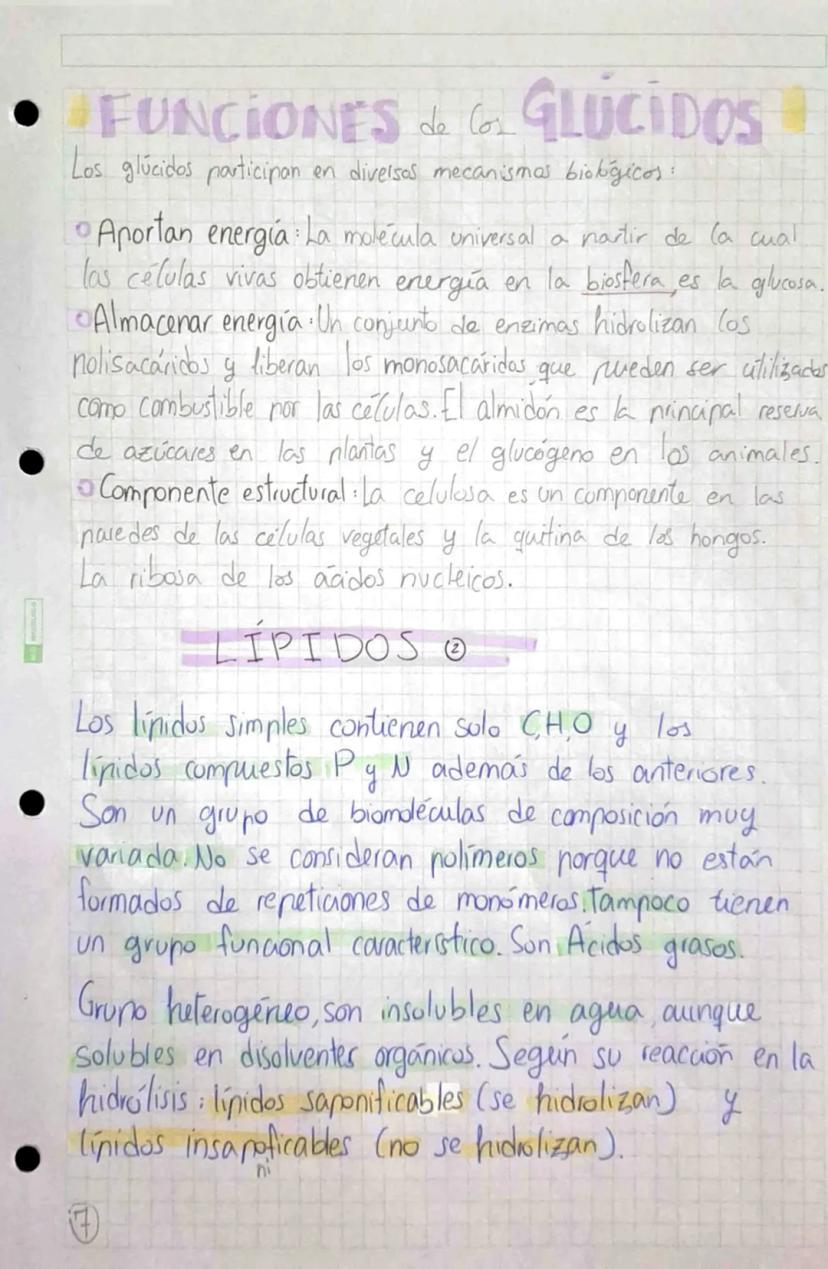 FUNCIONES de los GLÚCIDOS
Los glúcidos participan en diversos mecanismos biológicos:
Aportan energía: La molécula universal a partir de la cual
las células vivas obtienen energía en la biosfera, es la glucosa.
Almacenar energía: Un conjunto de enzimas hidrolizan los
polisacáridos y liberan los monosacáridos que pueden ser utilizados
como combustible por las células. El almidón es la principal reserva
de azúcares en las plantas y el glucógeno en los animales.
Componente estructural: La celulosa es un componente en las
paredes de las células vegetales y la quitina de los hongos.
La ribosa de los ácidos nucleicos.
LÍPIDOS ②
Los lípidos simples contienen solo C,H,O y los
lípidos compuestos P y N además de los anteriores.
Son un grupo de biomoléculas de composición muy
variada. No se consideran polímeros porque no están
formados de repeticiones de monómeros. Tampoco tienen
un grupo funcional característico. Son Ácidos grasos.
Grupo heterogéneo, son insolubles en agua, aunque
solubles en disolventes orgánicos. Según su reacción en la
hidrólisis: lípidos saponificables (se hidrolizan) y
lípidos insapoficables (no se hidrolizan).
ni
7